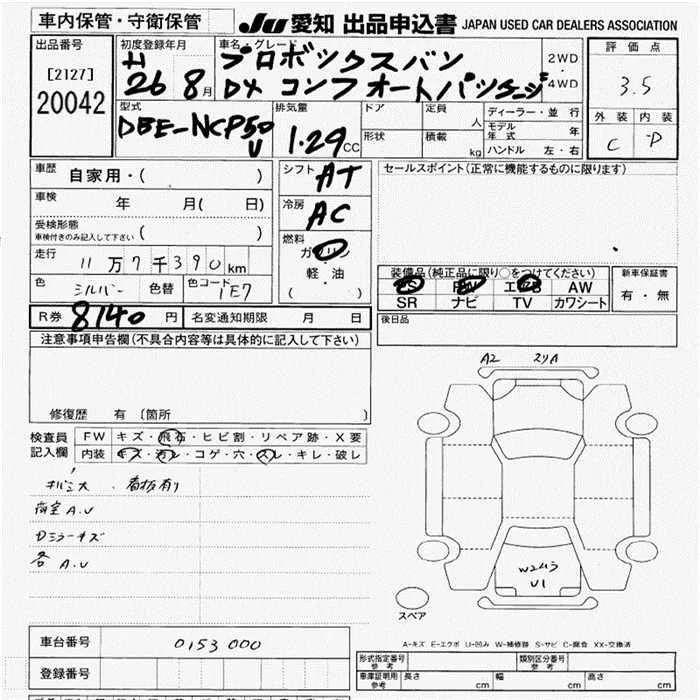 車内保管・守衛保管
JU 愛知 出品申込書 JAPAN USED CAR DEALERS ASSOCIATION
出品番号
[2127]
20042
初度登録年月
H
26 8月
車名・グレード
プロボックスバン
DX コンフォートパッケージ
2WD
・
4WD
評価点
3.5
外装 内装
C D
型式
DBE-NCP50
V
排気量
1.29 CC
ドア
形状
定員
人
積載
kg
ディーラー・並行
モデル年式 年
ハンドル 左・右
車歴 自家用・( )
車検 年 月( 日)
受検形態
車検付きのみ記入して下さい ( )
走行 11万7千390km
色 シルバー 色替 色コード 1E7
シフト AT
冷房 AC
燃料
ガソリン
・
軽・油
( )
セールスポイント(正常に機能するものに限ります)
装備品(純正品に限り○をつけてください)
PS PW エアB AW
SR ナビ TV カワシート
新車保証書
有・無
R券 8140円 名変通知期限 月 日
後日品
注意事項申告欄(不具合内容等は具体的に記入して下さい)
修復歴 有 〔箇所 〕
検査員
記入欄
FW キズ・飛石・ヒビ割・リペア跡・X要
内装 キズ・汚レ・コゲ・穴・スレ・キレ・破レ
看板有り
荷室A.U
Dミラーキズ
各A.U
A2
W2ムラ
U1
スペア
A-キズ E-エクボ U-凹み W-補修跡 S-サビ C-腐食 XX-交換済
車台番号 0153000
登録番号
形式指定番号
参考
類別区分番号
参考
車庫証明用
参考
長さ cm 幅 cm 高さ cm